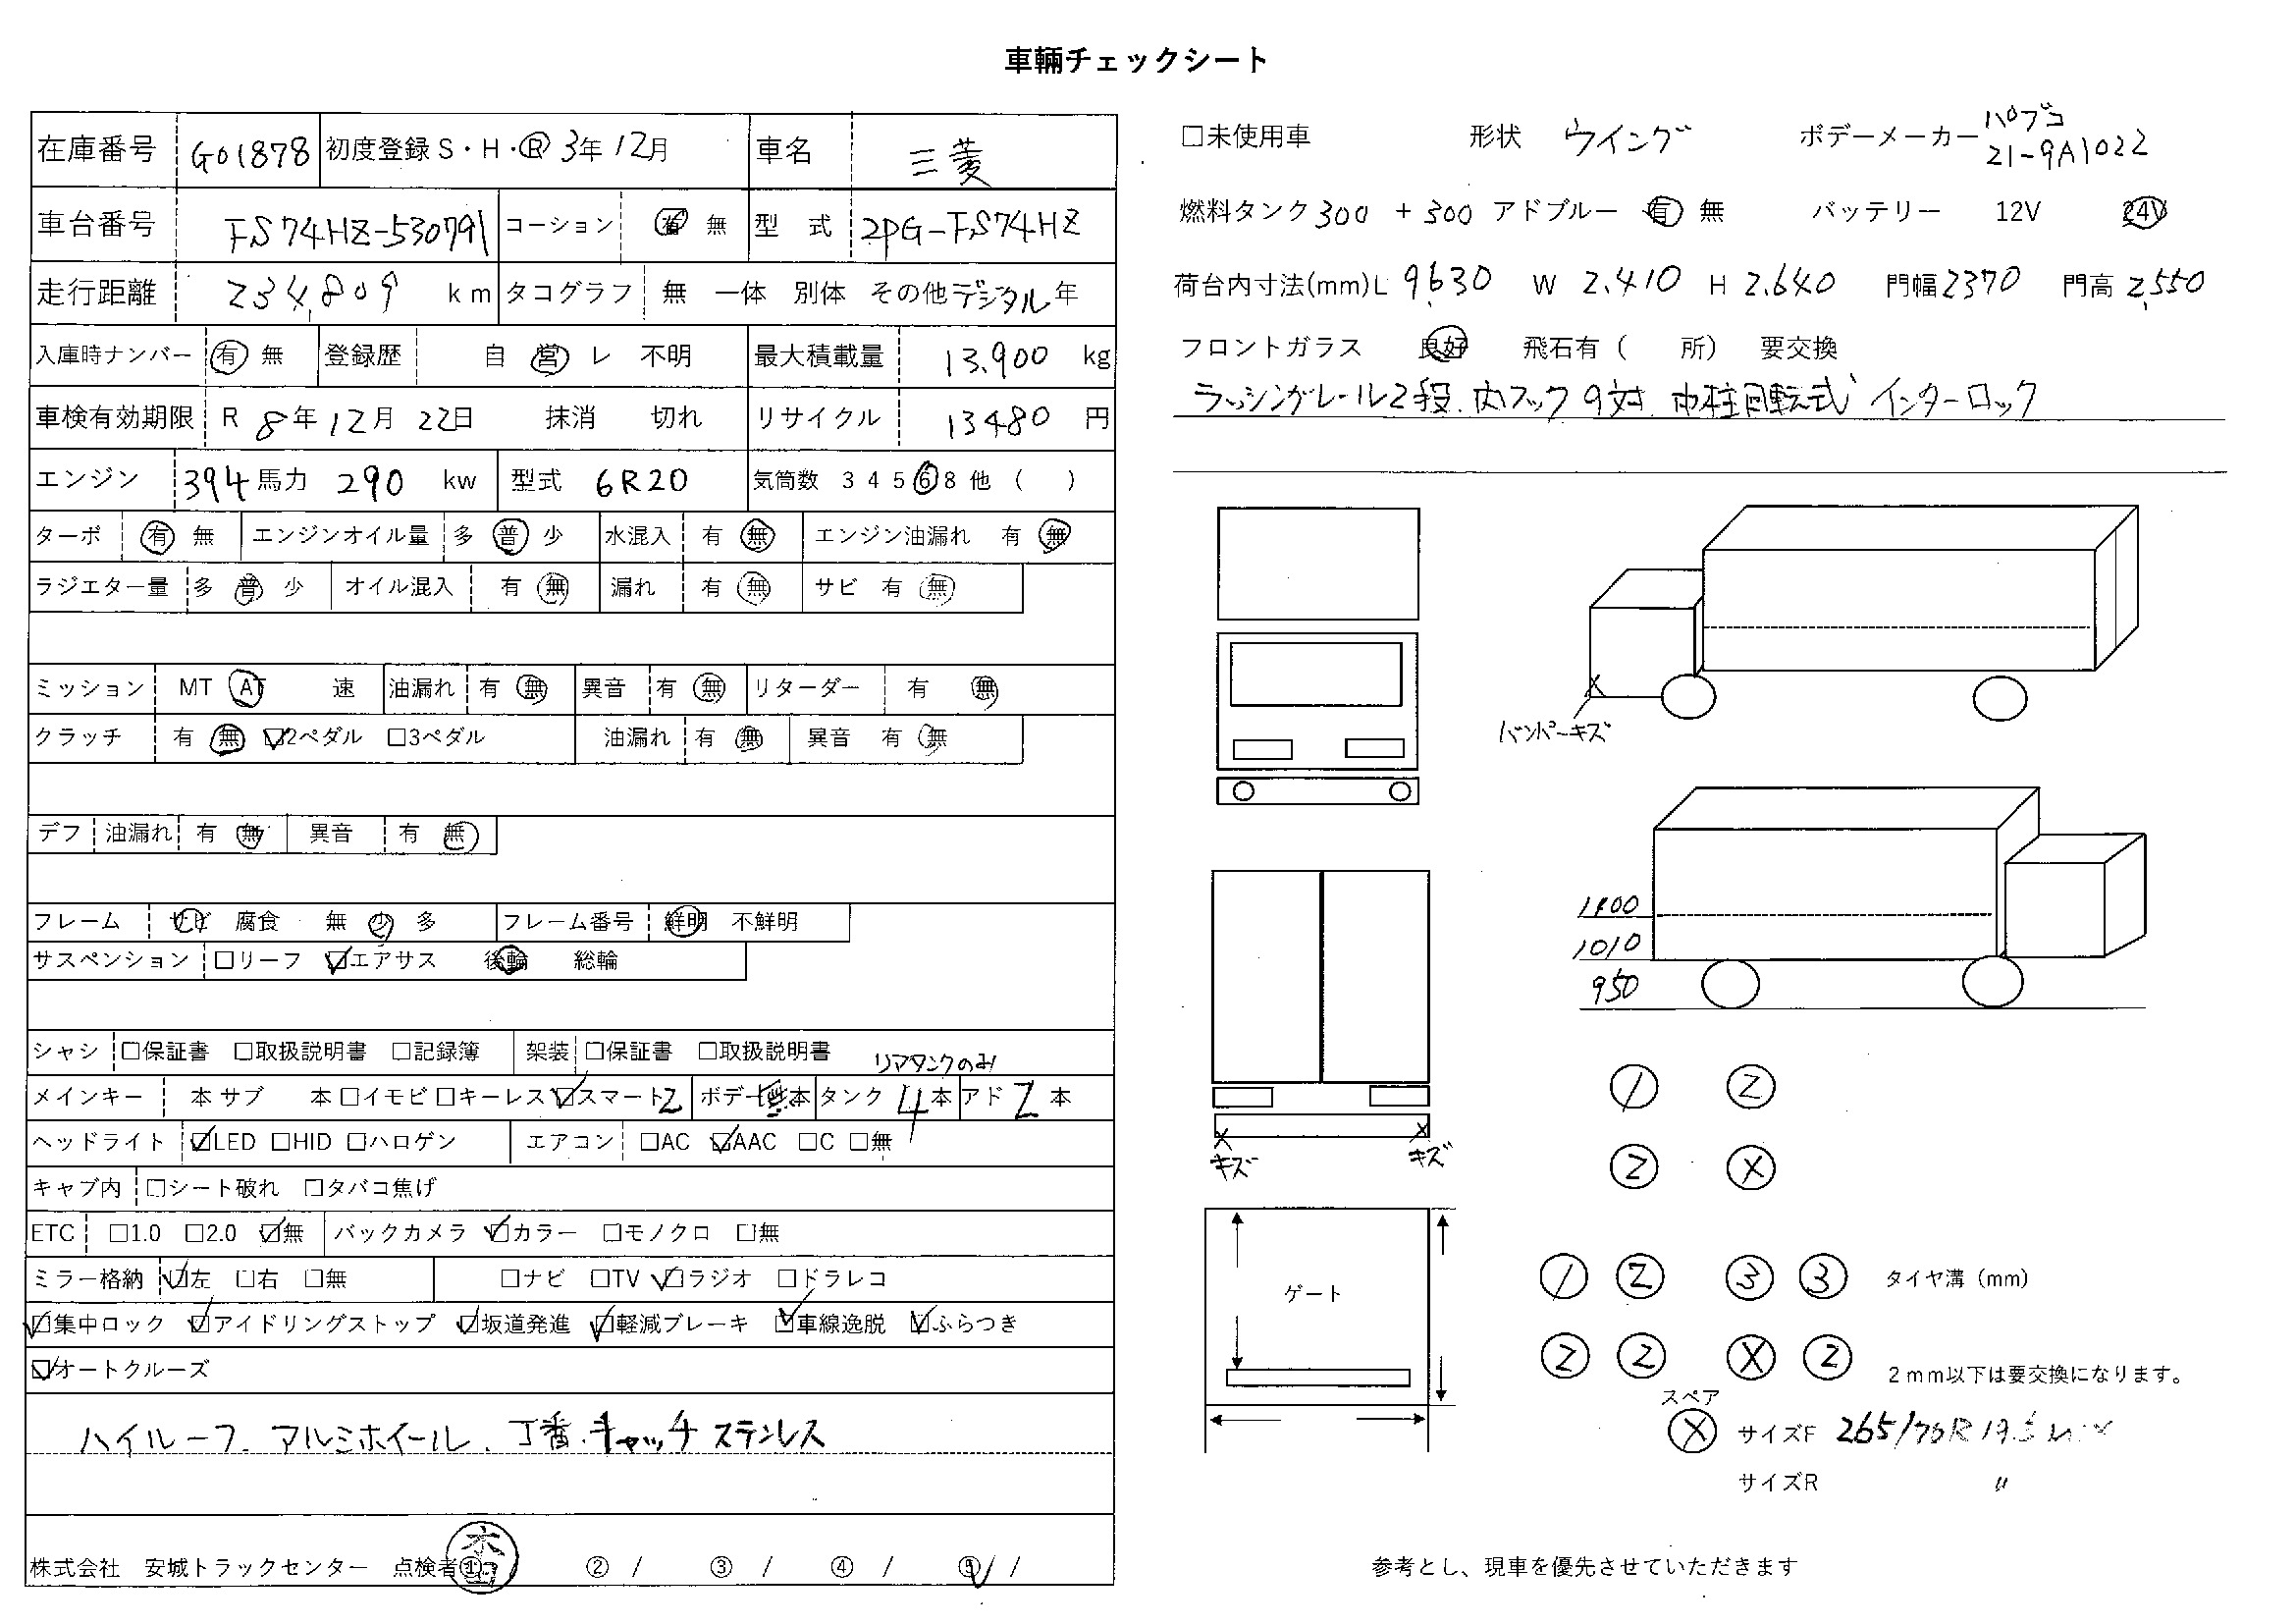 車輛チェックシート
在庫番号 G01878 初度登録 S・H・Ⓡ 3年 12月 車名 三菱
車台番号 FS74HZ-530791 コーション 有 無 型 式 2PG-FS74HZ
走行距離 234,809 km タコグラフ 無 一体 別体 その他 デジタル 年
入庫時ナンバー 有 無 登録歴 自 営 レ 不明 最大積載量 13,900 kg
車検有効期限 R 8年 12月 22日 抹消 切れ リサイクル 13480 円
エンジン 394馬力 290 kw 型式 6R20 気筒数 3 4 5 6 8 他 ( )
ターボ 有 無 エンジンオイル量 多 普 少 水混入 有 無 エンジン油漏れ 有 無
ラジエター量 多 普 少 オイル混入 有 無 漏れ 有 無 サビ 有 無
ミッション MT AT 速 油漏れ 有 無 異音 有 無 リターダー 有 無
クラッチ 有 無 ☑2ペダル □3ペダル 油漏れ 有 無 異音 有 無
デフ 油漏れ 有 無 異音 有 無
フレーム サビ 腐食 無 少 多 フレーム番号 鮮明 不鮮明
サスペンション □リーフ ☑エアサス 後輪 総輪
シャシ □保証書 □取扱説明書 □記録簿 架装 □保証書 □取扱説明書
リアタンクのみ
メインキー 本 サブ 本 □イモビ □キーレス ☑スマート2 ボデー 本 タンク 4本 アド 2 本
ヘッドライト ☑LED □HID □ハロゲン エアコン □AC ☑AAC □C □無
キャブ内 □シート破れ □タバコ焦げ
ETC □1.0 □2.0 ☑無 バックカメラ ☑カラー □モノクロ □無
ミラー格納 ☑左 □右 □無 □ナビ □TV ☑ラジオ □ドラレコ
☑集中ロック ☑アイドリングストップ ☑坂道発進 ☑軽減ブレーキ ☑車線逸脱 ☑ふらつき
☑オートクルーズ
ハイルーフ. アルミホイール. 丁番.キャッチ ステンレス
株式会社 安城トラックセンター 点検者① ② / ③ / ④ / ⑤ /
□未使用車 形状 ウイング ボデーメーカー パブコ
21-9A1022
燃料タンク 300 + 300 アドブルー 有 無 バッテリー 12V 24V
荷台内寸法(mm) L 9,630 W 2,410 H 2,640 門幅 2370 門高 2,550
フロントガラス 良好 飛石有 ( 所) 要交換
ラッシングレール2段. 内フック9対. 中柱回転式 インターロック
バンパーキズ
1010
950
キズ キズ
ゲート
1 2
2 X
1 2 3 3 タイヤ溝 (mm)
2 2 X 2 2mm以下は要交換になります。
スペア
X サイズF 265/70R 19.5
サイズR 〃
参考とし、現車を優先させていただきます